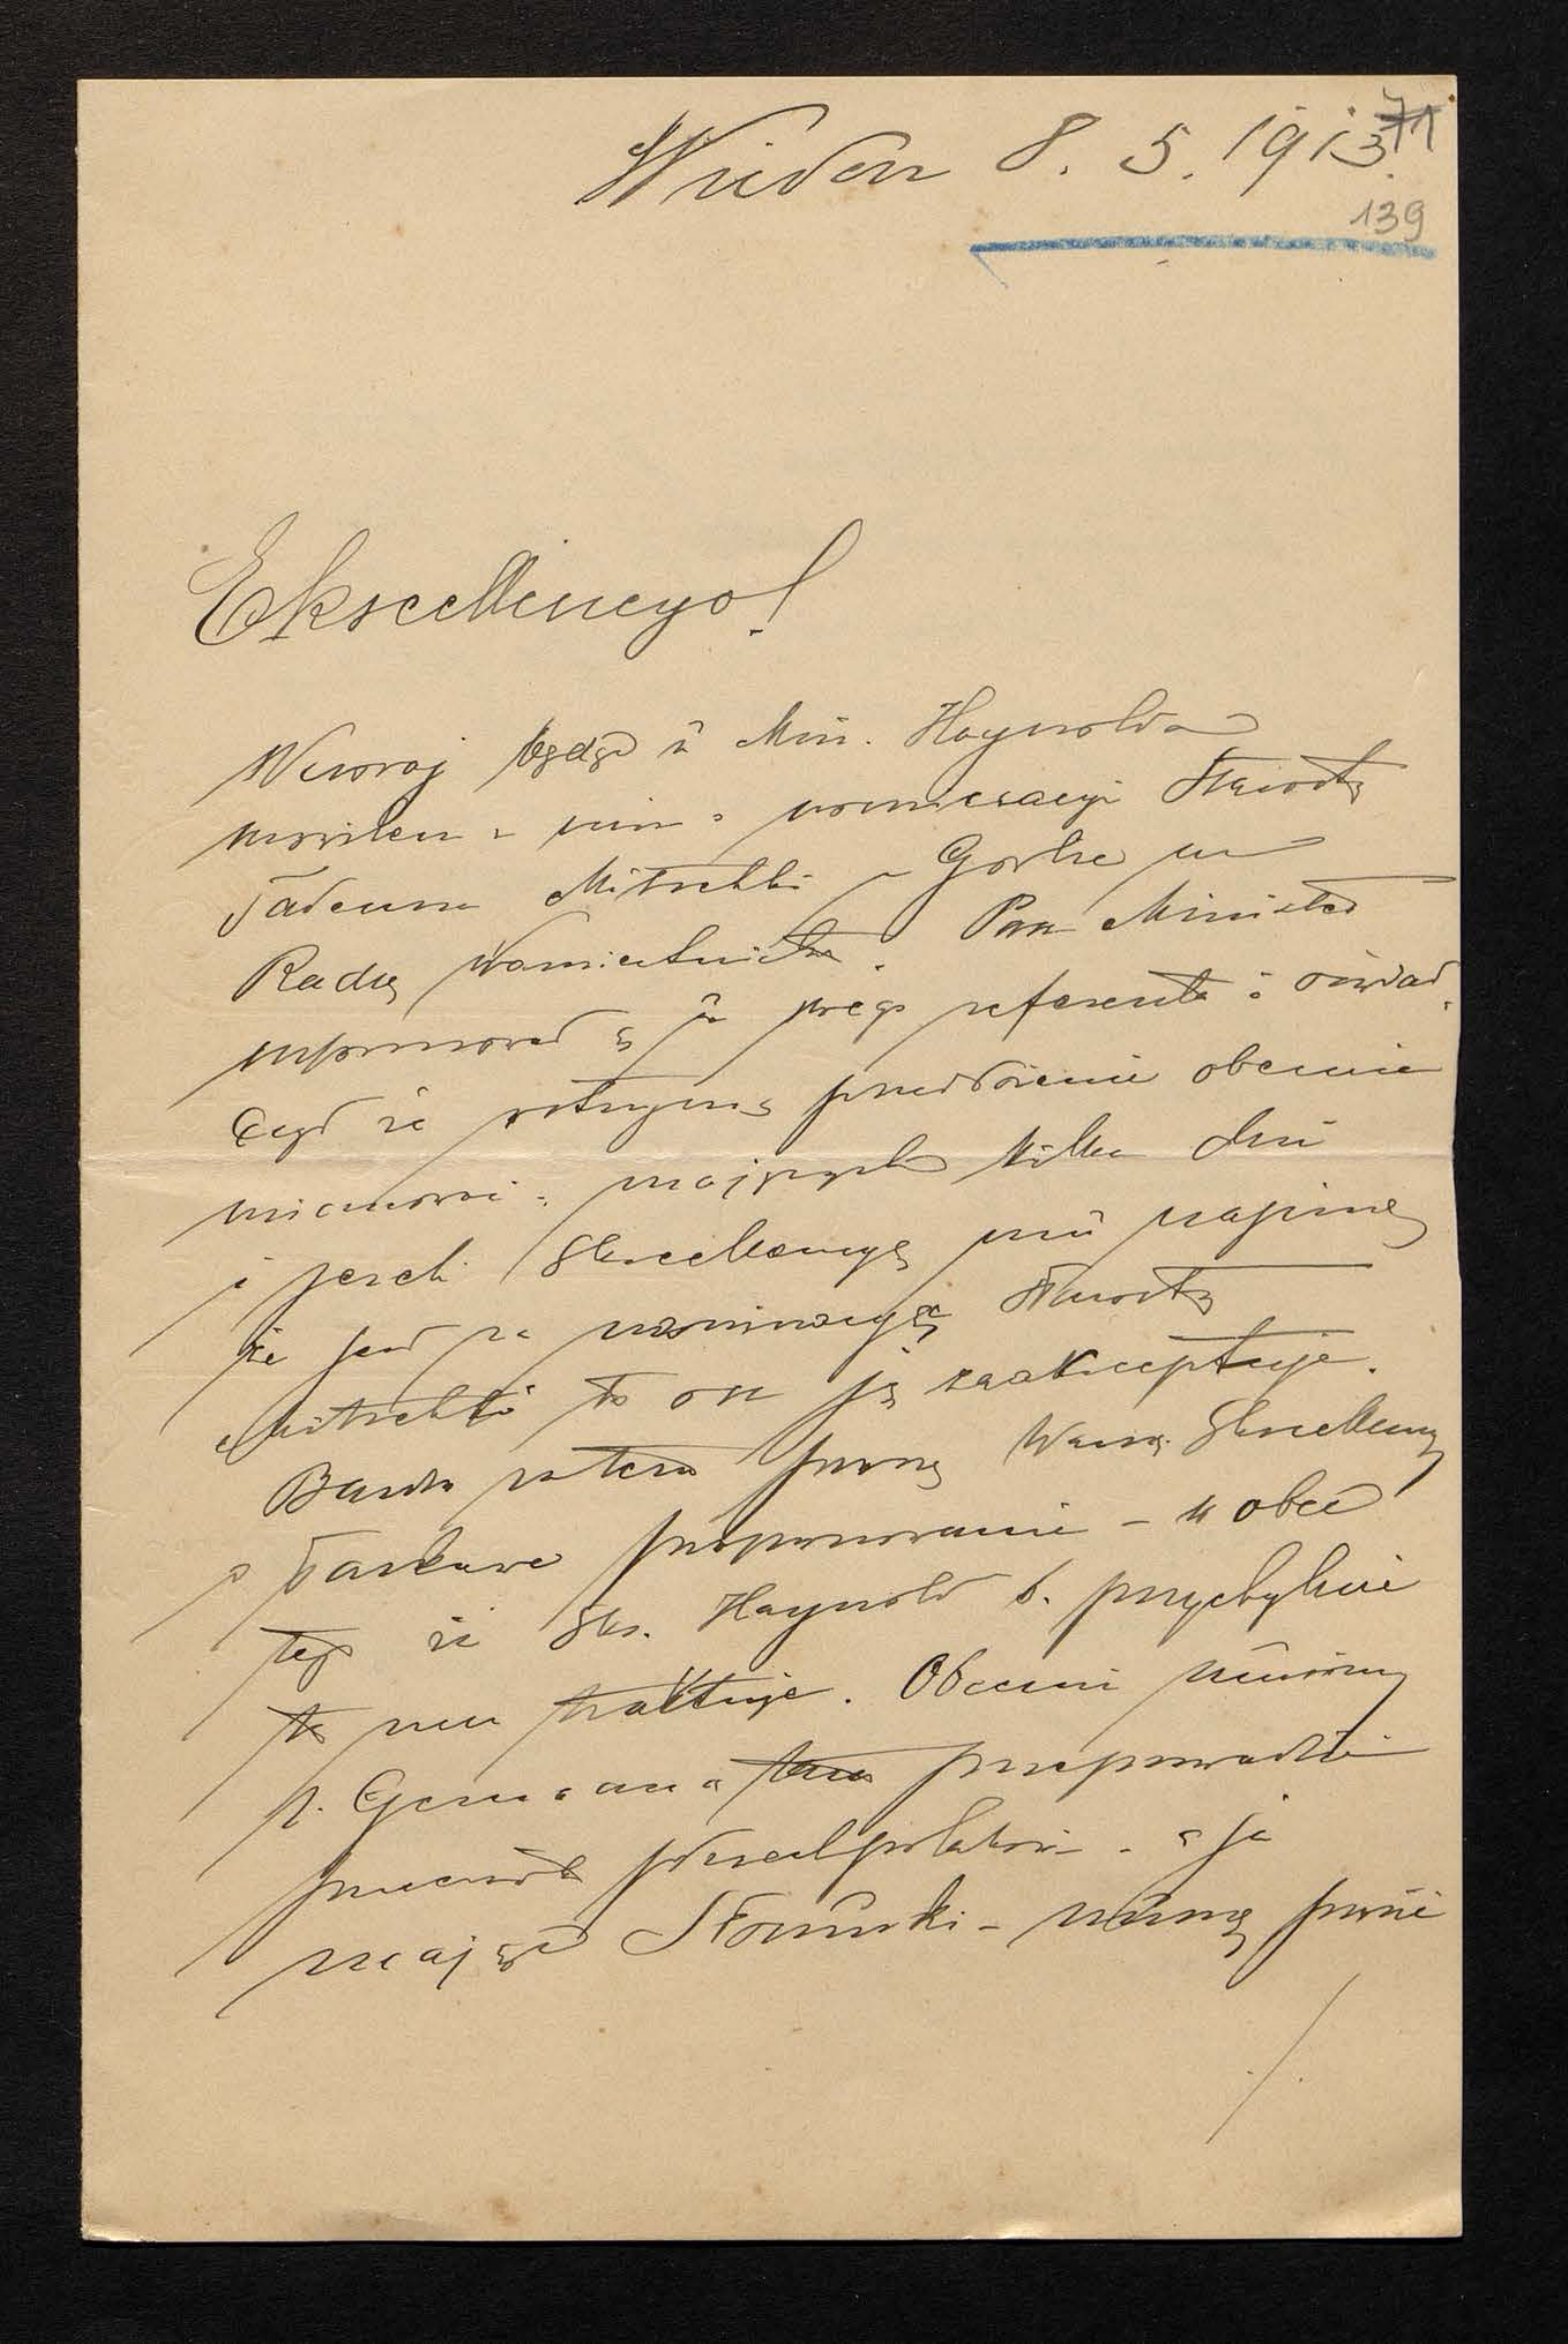 Wiedeń 8. 5. 1913. 71
139
Ekscellencyo!
Wczoraj będąc u Min. Haynolda
mówiłem z nim o nominacyi Starosty
Tadeusza Mitschki z Gorlic na
Radcę Namiestnictwa. Pan Minister
informował się u swego referenta i oświad
czył że otrzyma przedłożenie obecnie
mianowicie najwyżej kilka dni
i jeżeli Ekscellencya mu napisze
że jest za nominacyą Starosty
Mitschki to on ją zaakceptuje.
Bardzo zatem proszę Waszą Ekscellencyę
o łaskawe proponowanie - wobec
tego że Eks. Haynold b. przychylnie
to traktuje. Obecnie musimy
p. Germana przeprowadzić
przeciw wszechpolakowi - a ja
mając Stosunki - muszę
./.